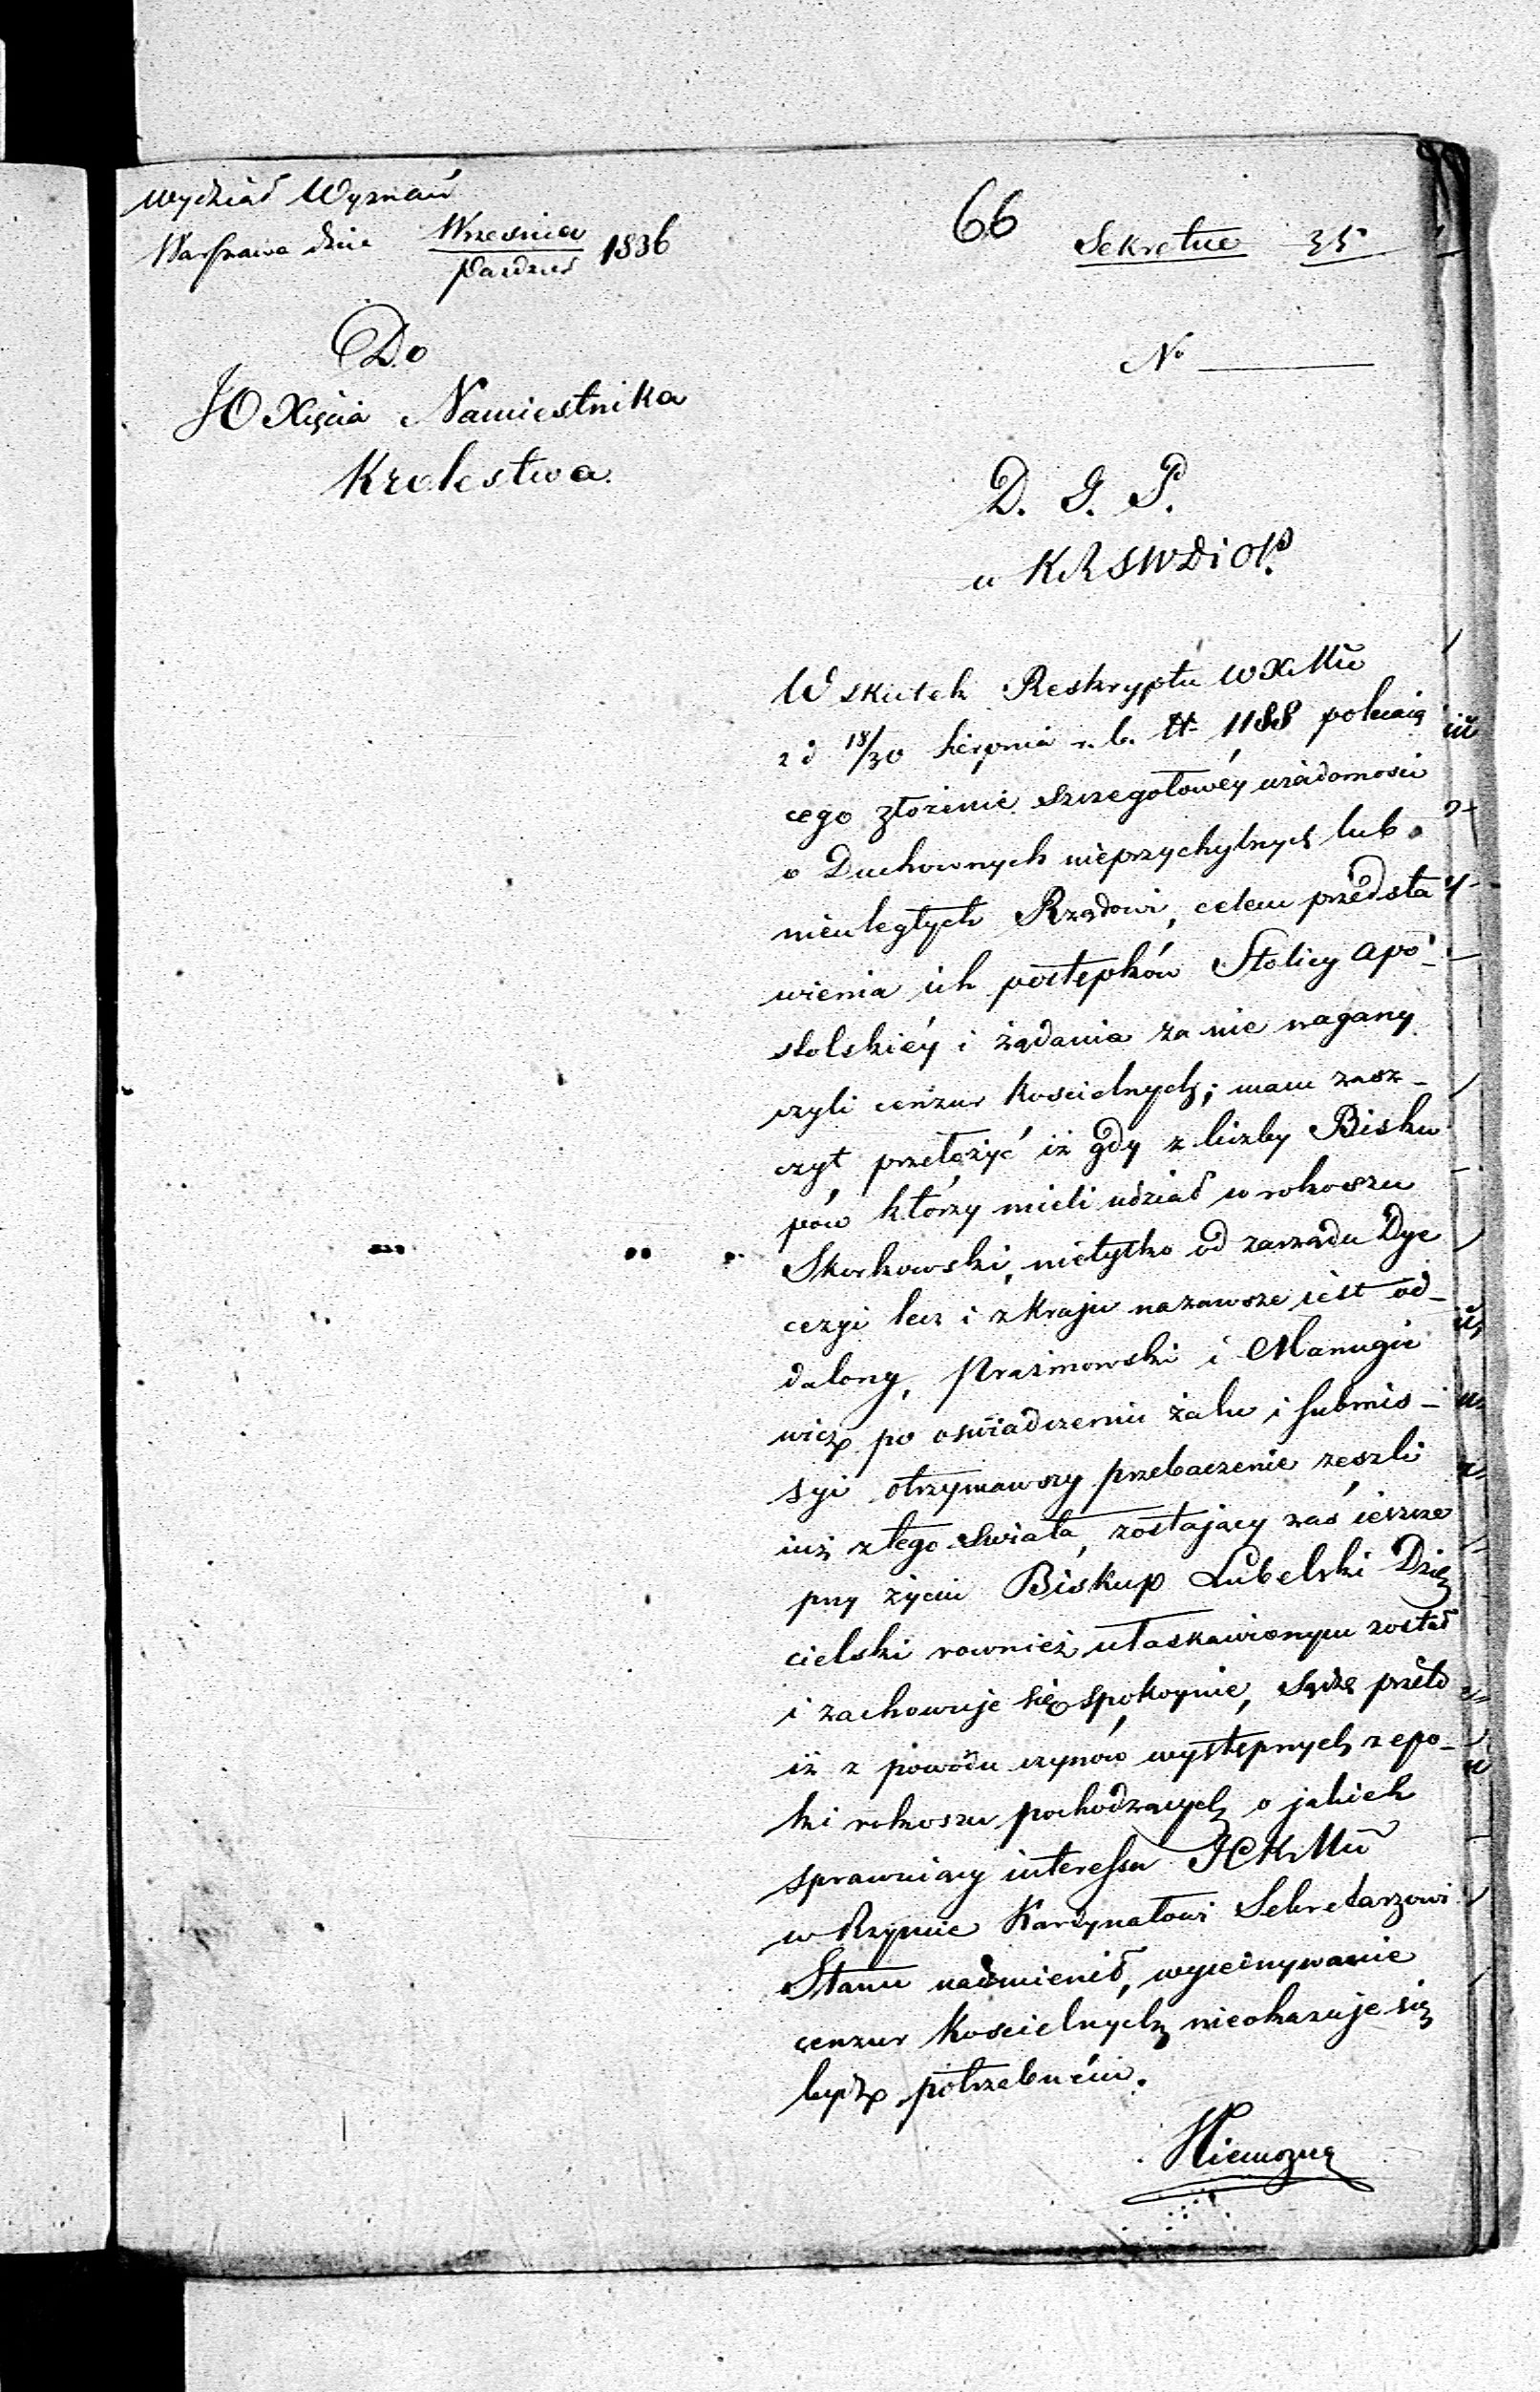 Wydział Wyznań
Warszawa dnia Wrzesnia/Pazdzier 1836
66
Sekretne 35
Do
JO Xięcia Namiestnika
Krolestwa.
No
D. G. P.
w KRSWDiOP.
W skutek Reskryptu WXMci
z d 18/30 Sierpnia r. b. N 1188 polecaią
cego złożenie szczegołowéy wiadomosci
o Duchownych nieprzychylnych lub
nieuległych Rządowi, celem przedsta
wienia ich postępków Stolicy Apo-
stolskiéy i żądania za nie nagany
czyli cenzur Koscielnych; mam zasz-
czyt przełożyć iż gdy z liczby Bisku
pów którzy mieli udział w rokoszu
Skorkowski, nietylko od zarządu Dye
cezyi lecz i z kraju nazawsze iest od-
dalony, Prażmowski i Manugie
wicz po oswiadczeniu żalu i submis-
syi otrzymawszy przebaczenie zeszli
iuż z tego swiata, zostający zaś ieszcze
przy życiu Biskup Lubelski Dzię
cielski rownież ułaskawionym został
i zachowuje się spokoynie, sądzę przeto
iż z powodu czynów występnych z epo-
ki rokoszu pochodzących o jakich
sprawuiący interessa JCKMci
w Rzymie Kardynałowi Sekretarzowi
Stanu nadmienił, wyiednywanie
cenzur Koscielnych nieokazuje się
bydź potrzebném.